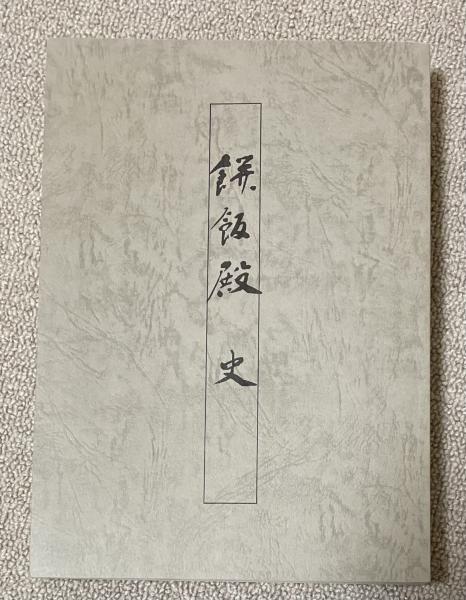 餅飯殿史